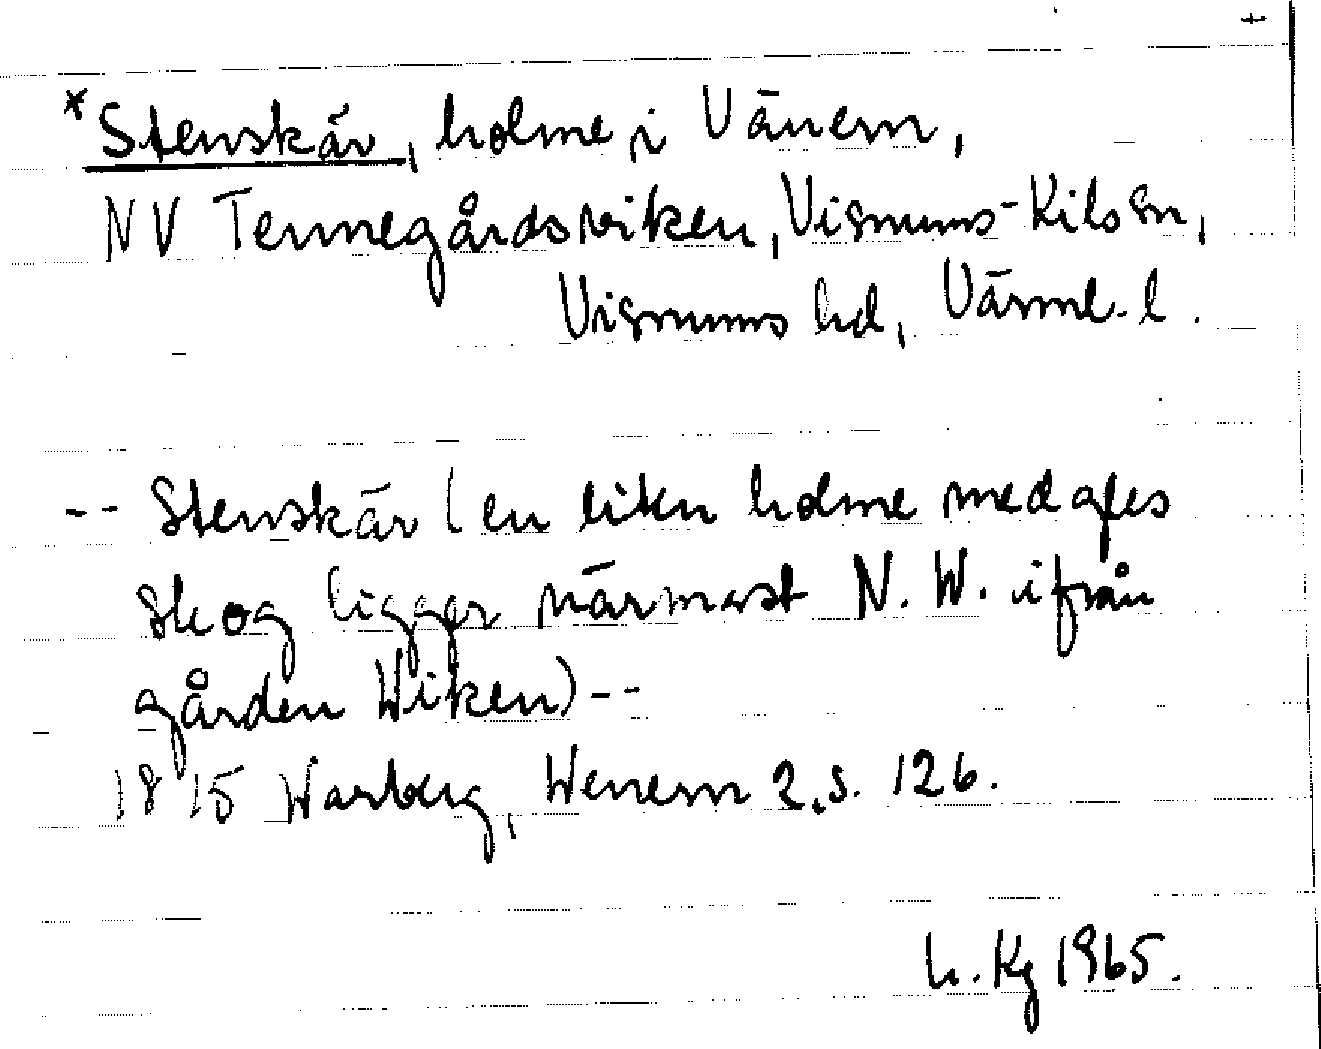 +
*Stenskär, holme i Vänern,
NV Tennegårdsviken, Visnums-Kils sn,
Visnums hd, Värml. l.
-- Stenskär (en liten holme med gles
skog ligger närmast N. W. ifrån
gården Wiken) --
1815 Warberg, Wenern 2, s. 126.
h. Kg 1965.